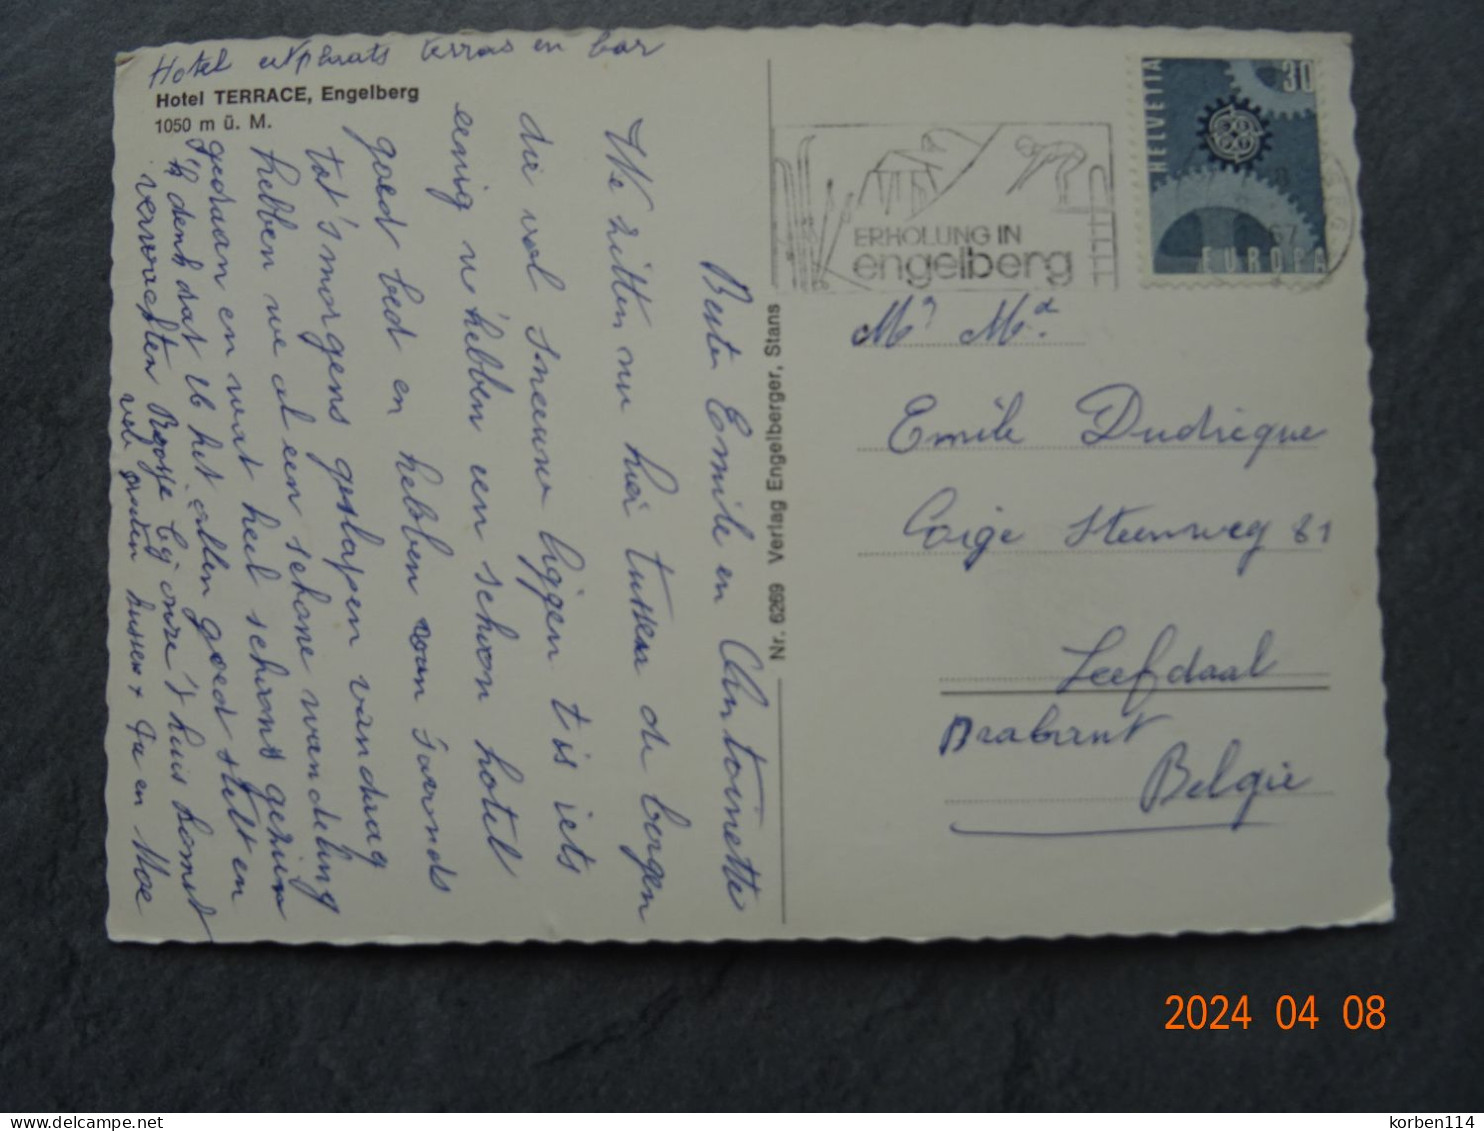 Hotel eetplaats terras en bar
Hotel TERRACE, Engelberg
1050 m ü. M.
Beste Emile en Antoinette
We zitten nu hier tussen de bergen
die vol sneeuw liggen t'is iets
eenig w'hebben een schoon hotel
goed bed en hebben van s'avonds
tot 's morgens geslapen vandaag
hebben we al een schone wandeling
gedaan en wat heel schoons gezien
'k denk dat U het ginder goed stelt en
verwachten bij onze t'huis komst
vele groeten kussen Pa en Moe
Nr. 6269 Verlag Engelberger, Stans
ERHOLUNG IN
engelberg
HELVETIA
30
EUROPA
67
Mr Md.
Emile Dudrieque
Steenweg 81
Leefdaal
Brabant
België
2024 04 08
delcampe.net
korben114